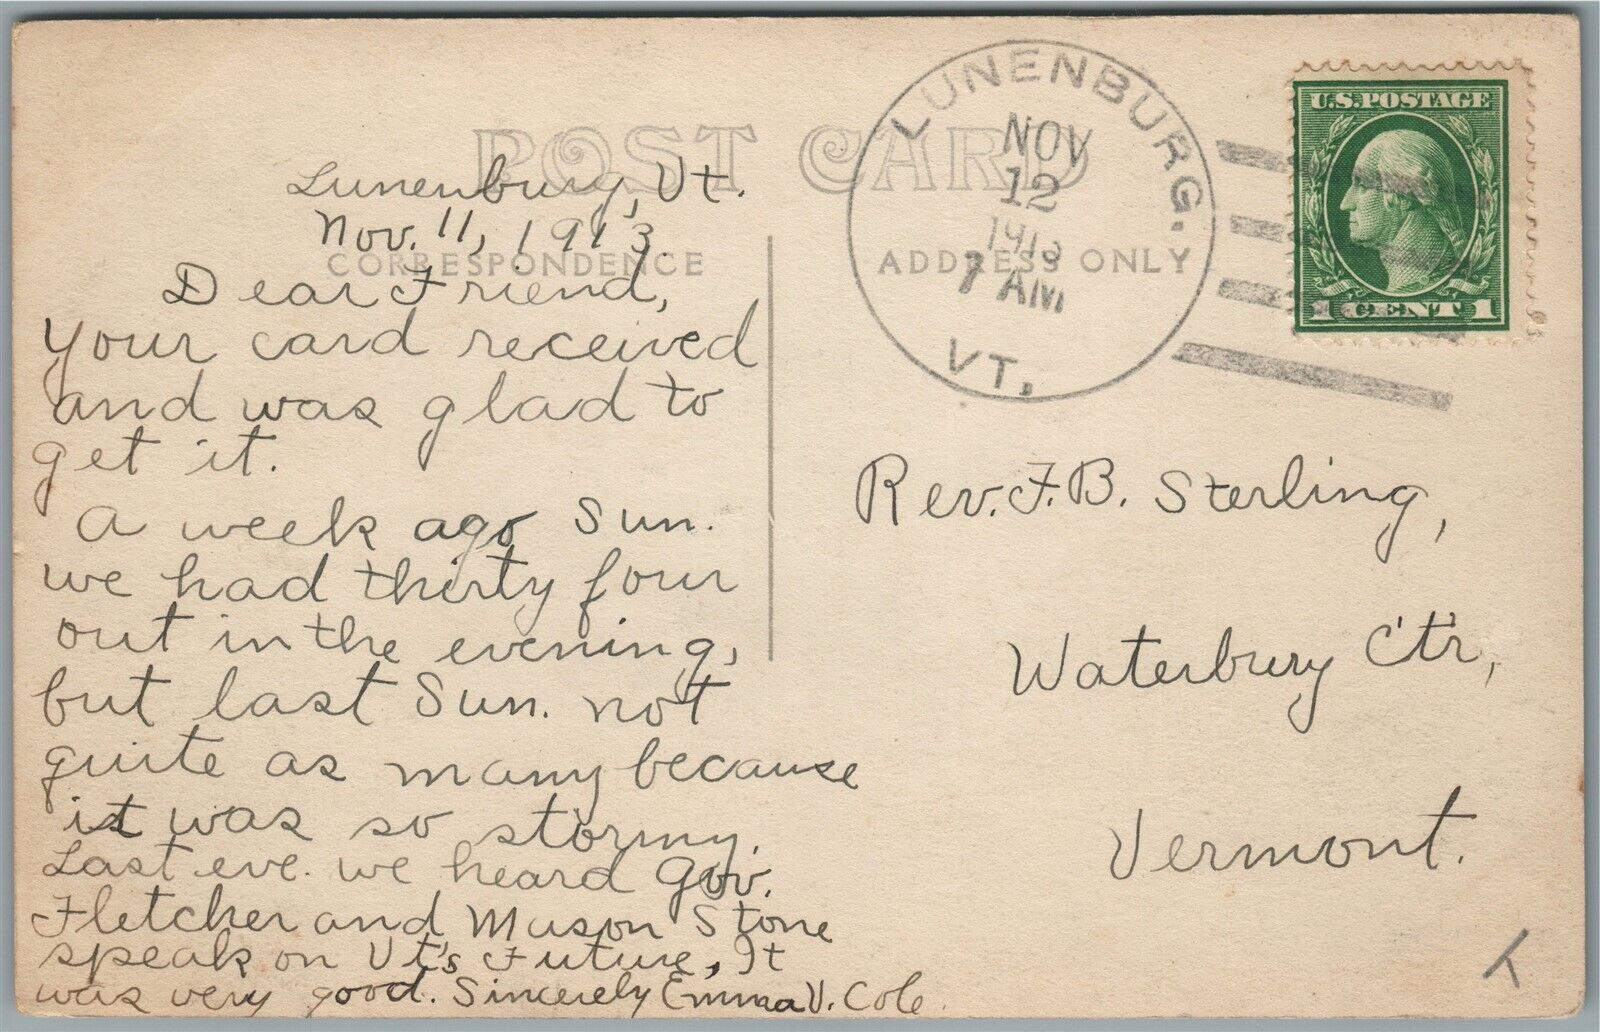 POST CARD
CORRESPONDENCE
ADDRESS ONLY
LUNENBURG.
NOV
12
1913
7 AM
VT.
U.S. POSTAGE
1 CENT 1
Lunenburg, Vt.
Nov. 11, 1913.
Dear Friend,
Your card received
and was glad to
get it.
A week ago Sun.
we had thirty four
out in the evening,
but last Sun. not
quite as many because
it was so stormy.
Last eve. we heard Gov.
Fletcher and Mason Stone
speak on Vt's Future, It
was very good. Sincerely Emma V. Cole.
Rev. F. B. Sterling,
Waterbury Ctr,
Vermont.